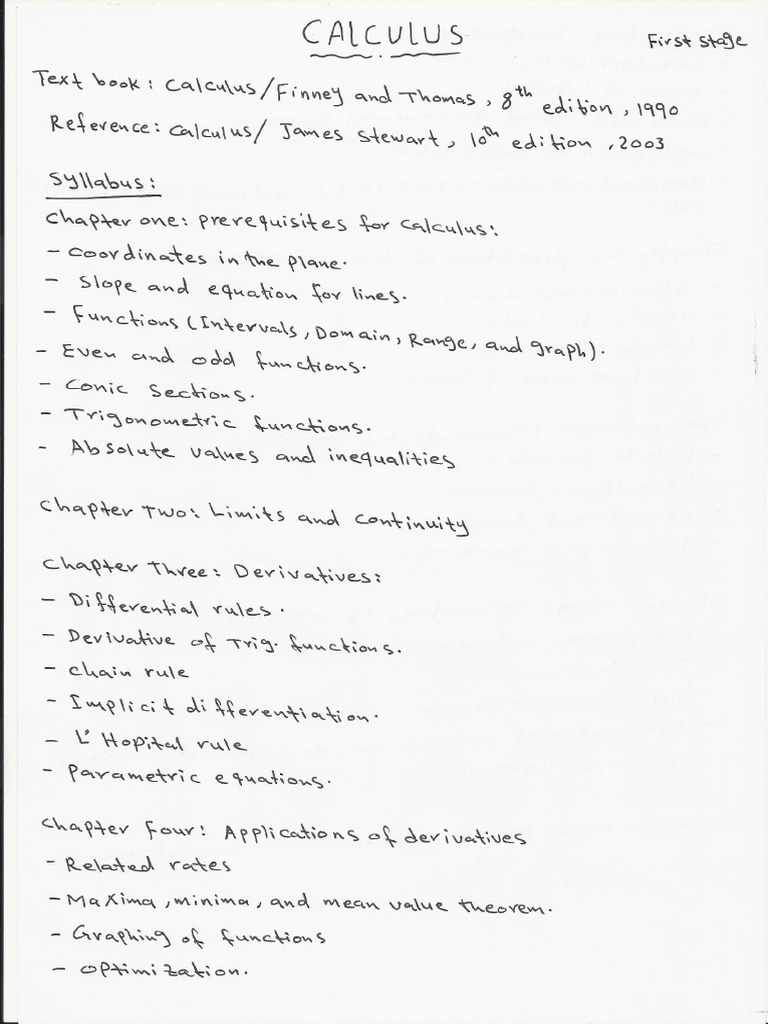 CALCULUS
First stage
Text book: Calculus/Finney and Thomas, 8th edition, 1990
Reference: Calculus/ James Stewart, 10th edition, 2003
Syllabus:
Chapter one: prerequisites for calculus:
- Coordinates in the plane.
- Slope and equation for lines.
- Functions (Intervals, Domain, Range, and graph).
- Even and odd functions.
- Conic Sections.
- Trigonometric functions.
- Absolute values and inequalities
Chapter Two: Limits and Continuity
Chapter Three: Derivatives:
- Differential rules.
- Derivative of Trig. functions.
- Chain rule
- Implicit differentiation.
- L'Hopital rule
- Parametric equations.
Chapter Four: Applications of derivatives
- Related rates
- Maxima, minima, and mean value theorem.
- Graphing of functions
- Optimization.